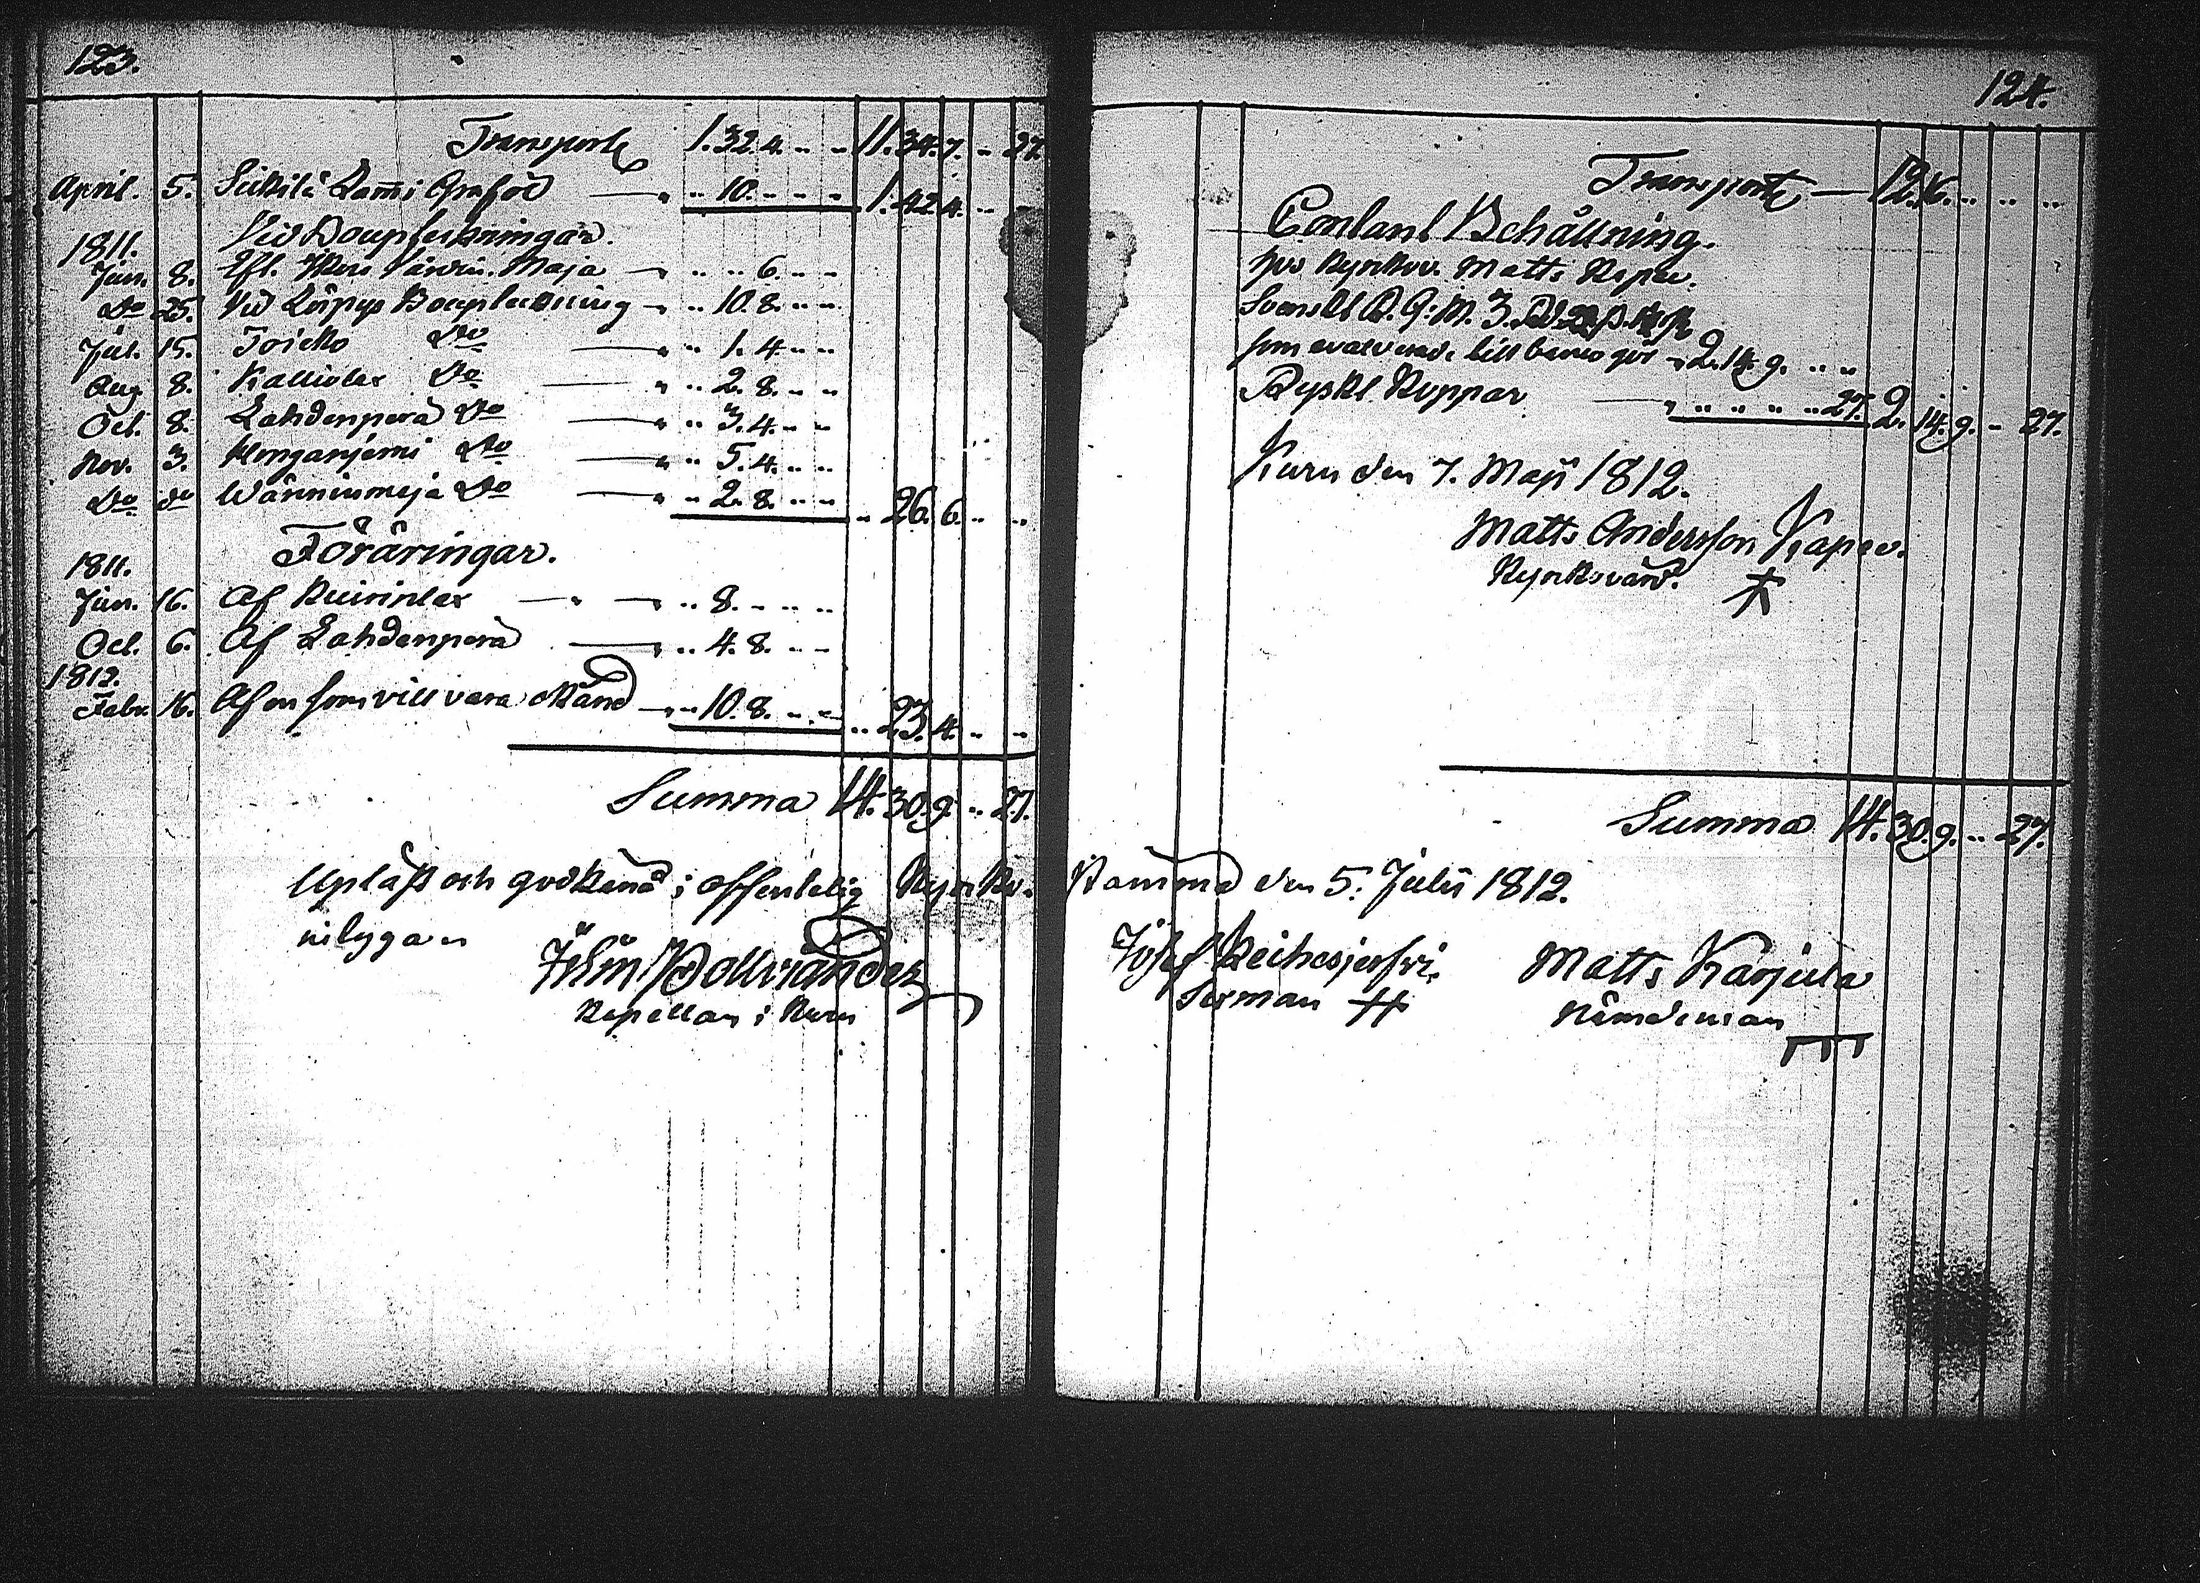 123.
Transport 1. 32. 4. .. .. 11. 34. 7. .. 27.
April. 5. Siikilä Lami Grafröd — .. 10. .. .. .. 1. 42. 4. .. ..
Vid Bouptekningar.
1811.
Jan. 8. Efl. Maja — .. .. 6. .. ..
Do 25. Vid Bouptekning — .. 10. 8. .. ..
Jul. 15. Do — .. 1. 4. .. ..
Aug. 8. Do — .. 2. 8. .. ..
Oct. 8. Lahdenperä Do — .. 3. 4. .. ..
Nov. 3. Honganjemi Do — .. 5. 4. .. ..
Do do Do — .. 2. 8. .. .. .. 26. 6. .. ..
Föräringar.
1811.
Jan. 16. Af — .. 8. .. .. ..
Oct. 6. Af Lahdenperä — .. 4. 8. .. ..
1812.
Febr. 16. Af en som vill vara okänd — .. 10. 8. .. .. .. 23. 4. .. ..
Summa 14. 30. 9. .. 27.
Upläst och godkänd i offentelig Kyrko-
nilygar
Kapellan i Kuru
124.
Transport — 12. 16. .. .. ..
Contant Behållning.
hos Kyrkov. Matts Kapee.
Svenskt R. G: M. 3. Rd
som evalverade till banco gör .. 2. 14. 9. .. ..
Ryskt Koppar — .. .. .. .. 27. 2. 14. 9. .. 27.
Kuru den 7. Maji 1812.
Matts Andersson Kapee.
Kyrkovärd.
Summa 14. 30. 9. .. 27.
Stämma den 5. Julii 1812.
Josef
Sexman
Matts Karjula
Nämdeman